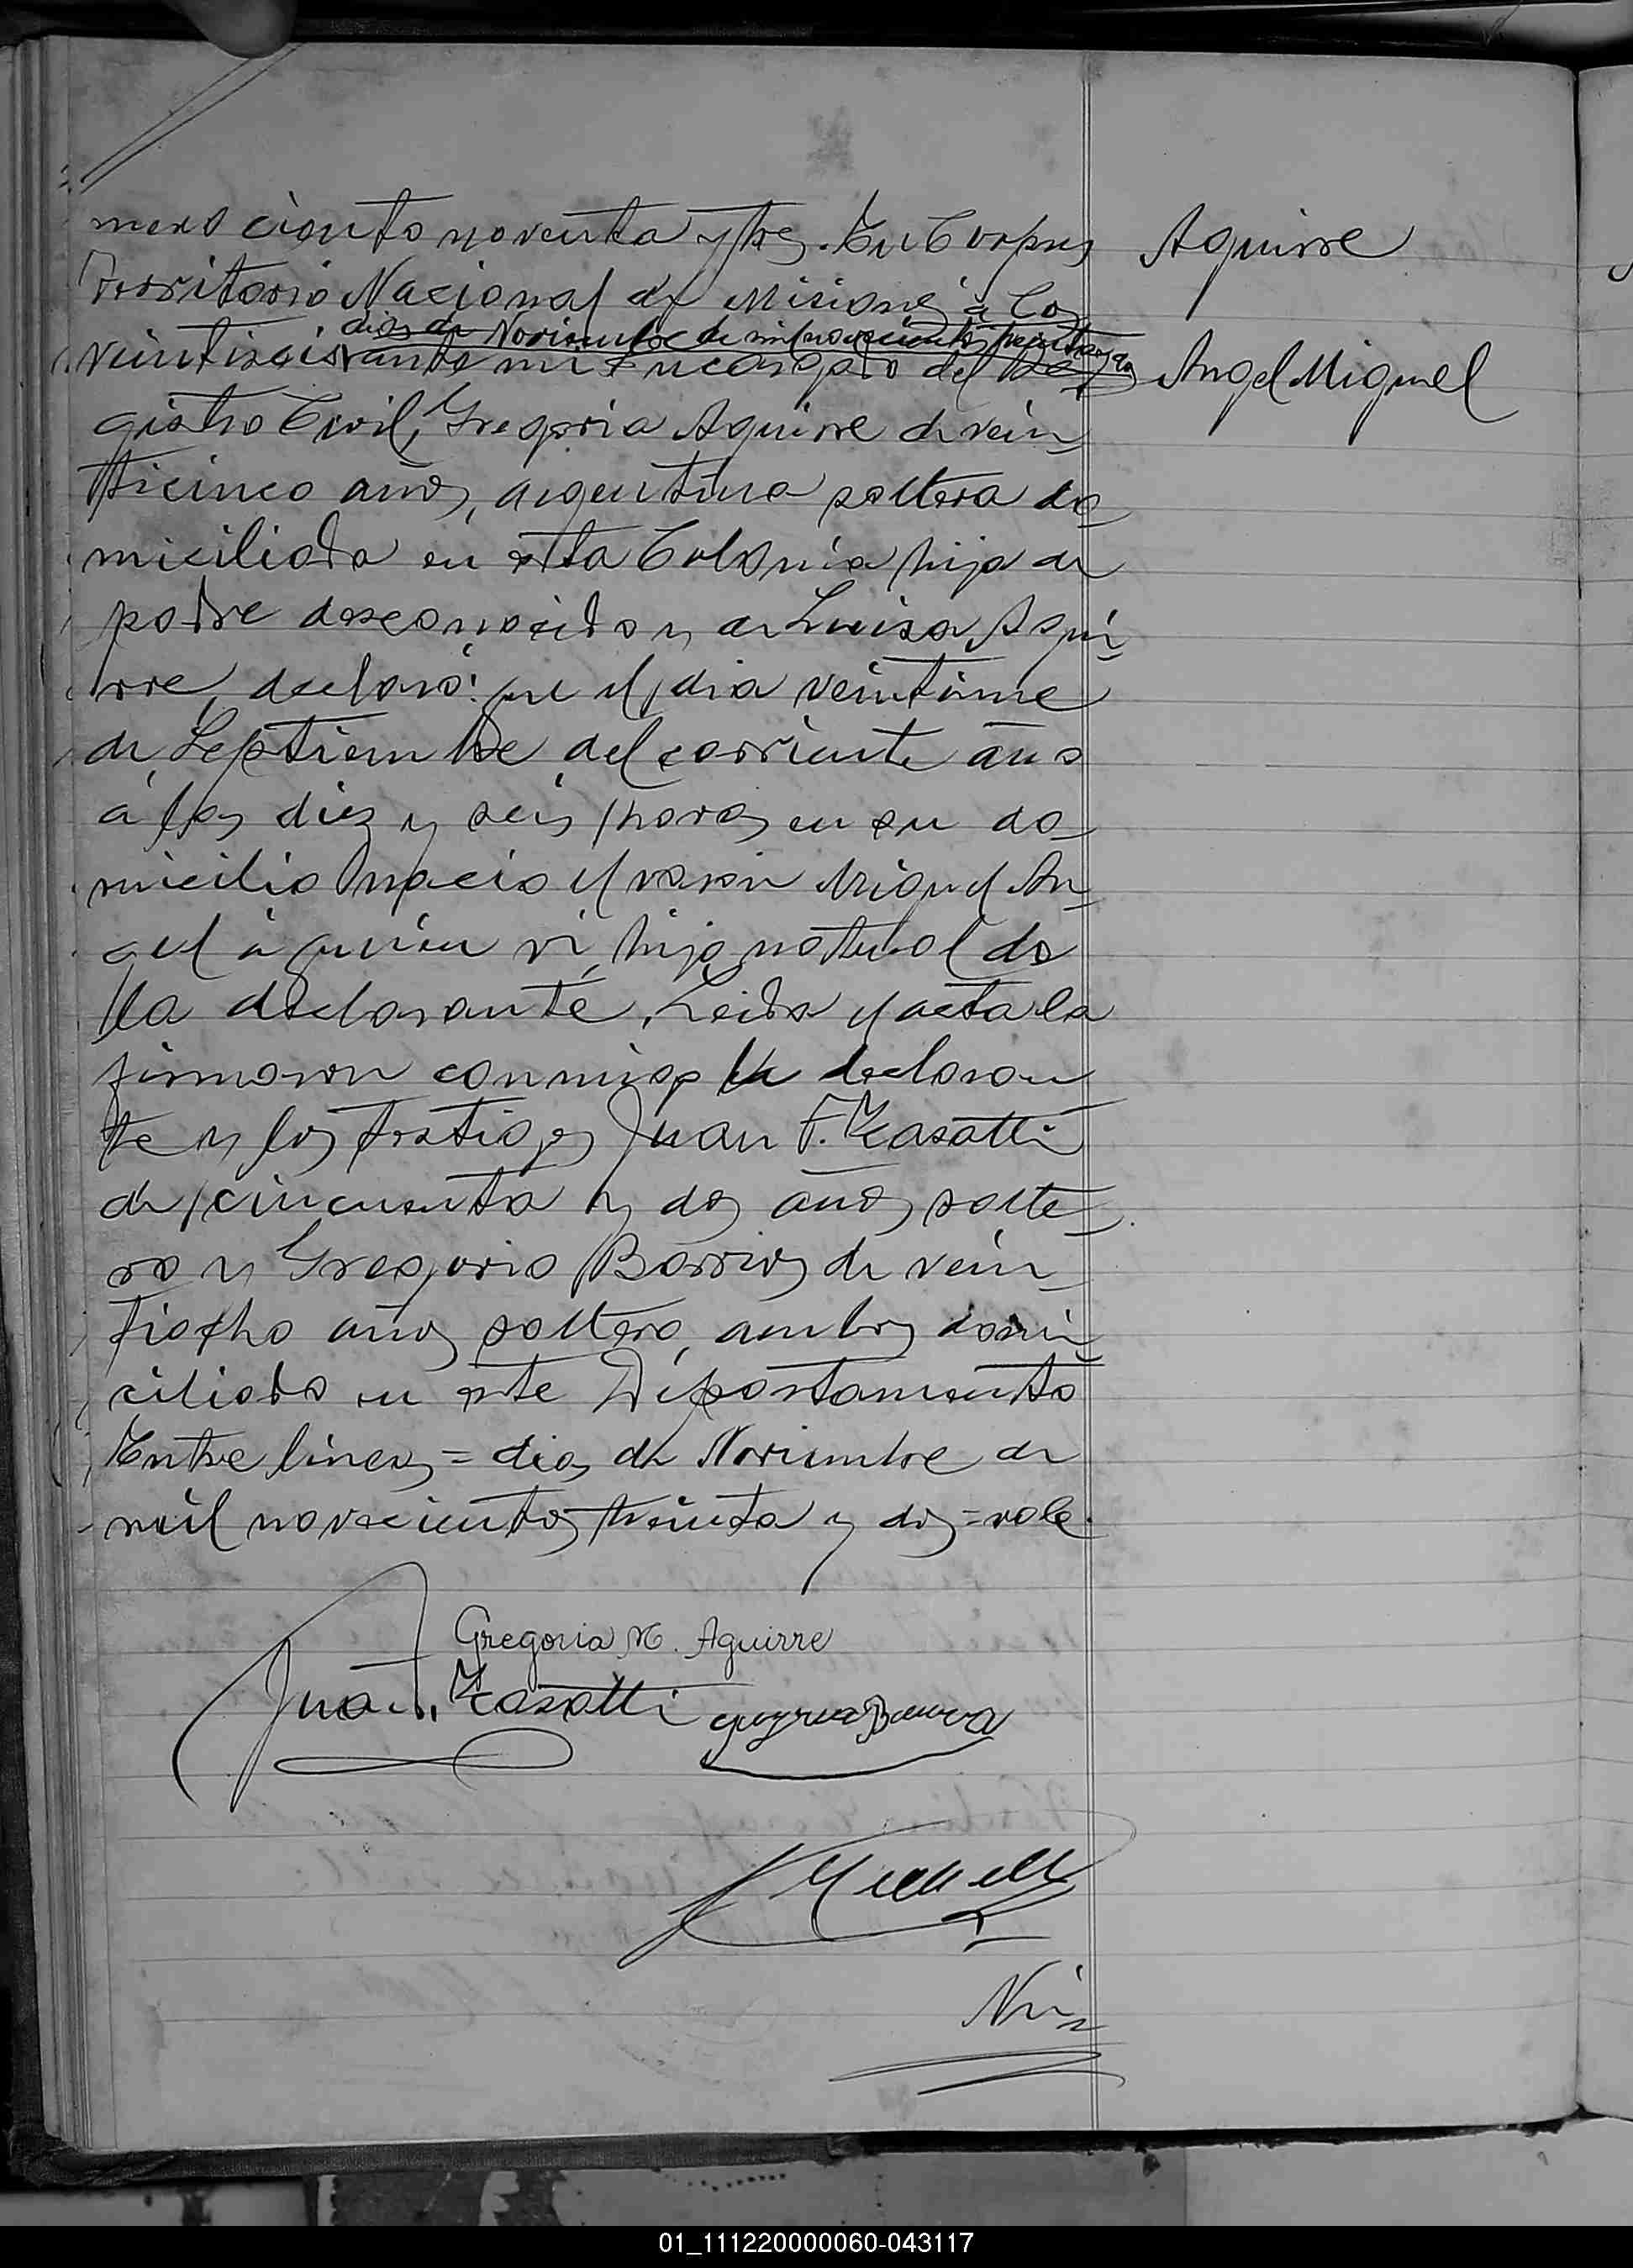 mero ciento noventa y tres. En Corpus
Aguirre
Territorio Nacional de Misiones á los
dias de Noviembre de mil novecientos treinta y dos
veintiseis ante mi Encargado del Re-
Angel Miguel
gistro Civil, Gregoria Aguirre de vein-
ticinco años, argentina soltera do-
miciliada en esta Colonia hija de
padre desconocido y de Luisa Agui-
rre, declaró: que el dia veintinue
de Septiembre del corriente año
á las diez y seis horas en su do-
micilio nació el varon Miguel An-
gel á quien vi, hijo natural de
la declarante. Leida el acta la
firmaron conmigo la declaran-
te y los testigos Juan F. Casatti
de cincuenta y dos años solte-
ro y Gregorio Barrios de vein-
tiocho años soltero, ambos domi-
ciliado en este Departamento
Entre lineas = dias de Noviembre de
mil novecientos treinta y dos = vale.
Gregoria M. Aguirre
Juan F. Casatti
01_111220000060-043117